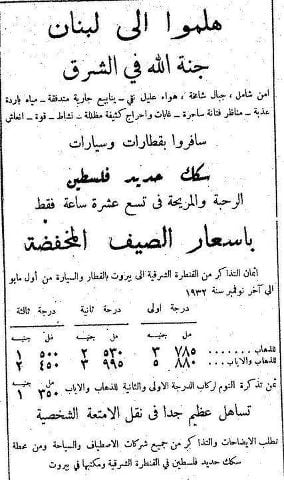 هلموا الى لبنان
جنة الله في الشرق
امن شامل ، جبال شاهقة ، هواء عليل نقي – ينابيع جارية متدفقة – مياه باردة
عذبة – مناظر فتانة ساحرة – غابات واحراج كثيفة مظللة – نشاط – قوة – انعاش
سافروا بقطارات وسيارات
سكك حديد فلسطين
الرحبة والمريحة في تسع عشرة ساعة فقط
باسعار الصيف المخفضة
اثمان التذاكر من القنطرة الشرقية الى بيروت بالقطار والسيارة من أول مايو
الى آخر نوفمبر سنة ١٩٣٢
درجة اولى درجة ثانية درجة ثالثة
مل جنيه مل جنيه مل جنيه
للذهاب ٧٨٥ ٣ ٥٣٠ ٢ ٥٠٠ ١
للذهاب والاياب ٨٨٠ ٥ ٩٩٥ ٣ ٤٥٠ ٢
مل جنيه
ثمن تذكرة النوم لركاب الدرجة الاولى والثانية للذهاب والاياب ٣٥٠ ١
تساهل عظيم جدا فى نقل الامتعة الشخصية
تطلب الايضاحات والتذاكر من جميع شركات الاصطياف والسياحة ومن محطة
سكك حديد فلسطين في القنطرة الشرقية ومكتبها في بيروت